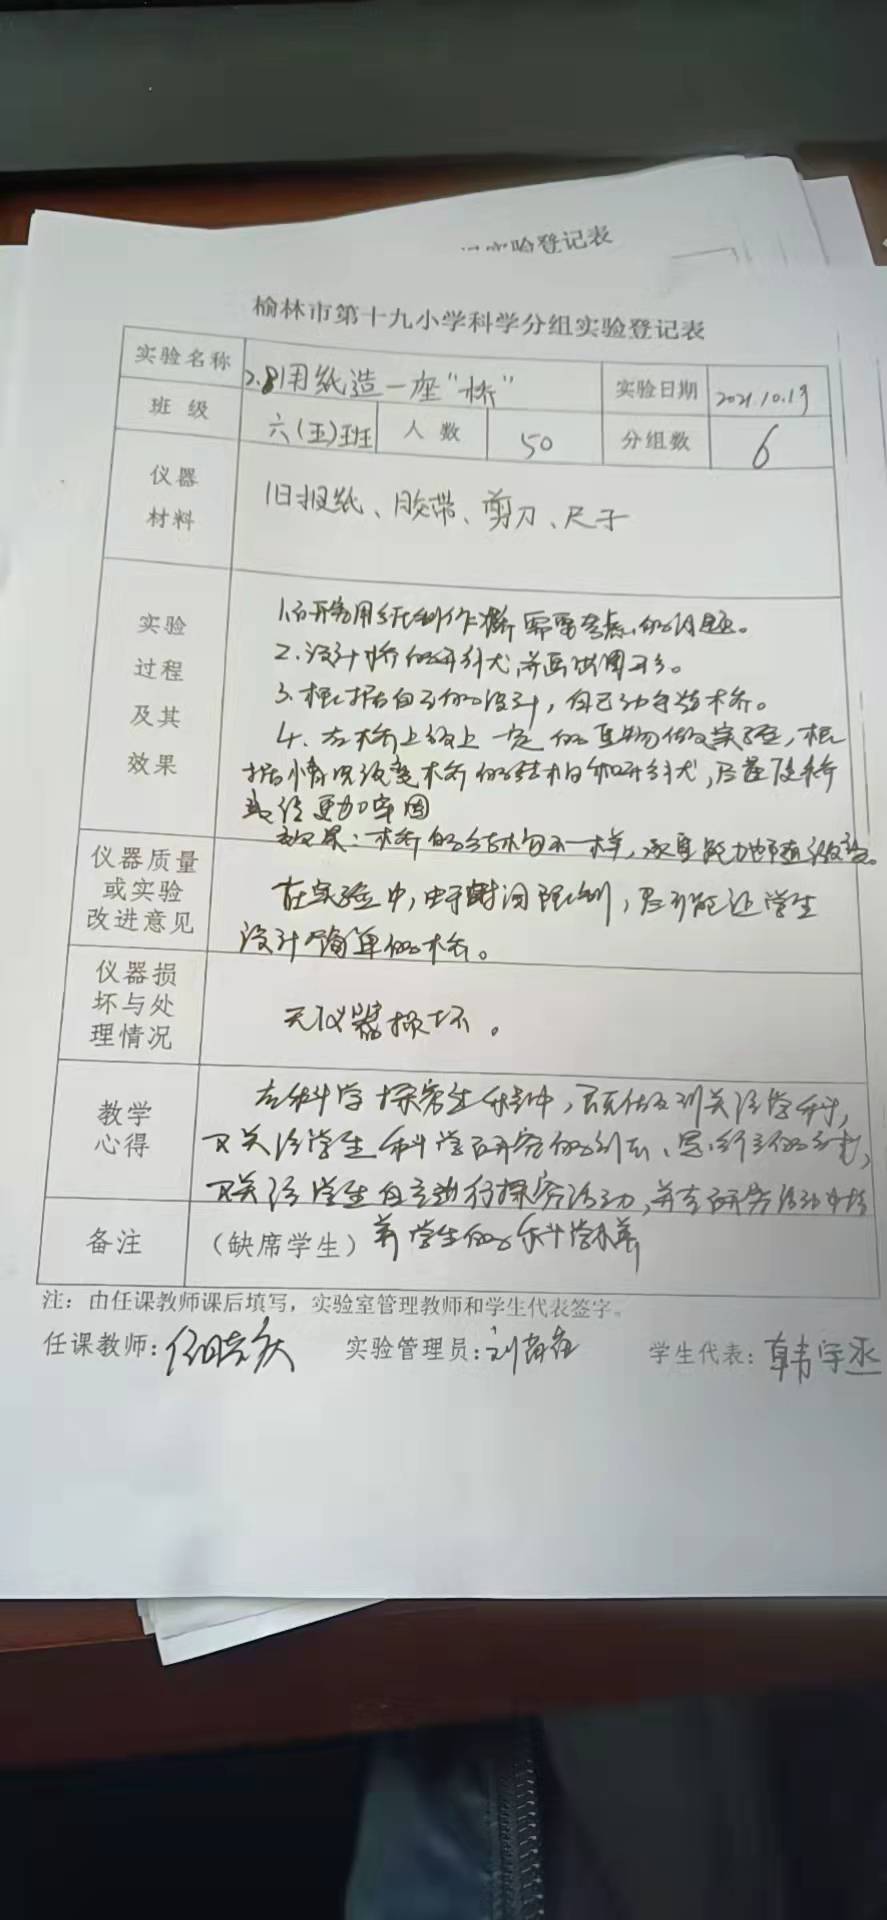 实验登记表
榆林市第十九小学科学分组实验登记表
实验名称 2.8用纸造一座“桥” 实验日期 2021.10.19
班级 六(五)班 人数 50 分组数 6
仪器材料 旧报纸、胶带、剪刀、尺子
实验过程及其效果
1.研究用纸制作桥需要考虑的问题。
2.设计桥的形状,并画出图形。
3.根据自己的设计,自己动手造桥。
4.在桥上放上一定的重物做实验,根
据情况改变桥的结构和形状,尽量使桥
更加牢固
效果:桥的结构不一样,承重能力也随改变。
仪器质量或实验改进意见
在实验中,由于时间限制,只能让学生
设计简单的桥。
仪器损坏与处理情况
无仪器损坏。
教学心得
在科学探究过程中,既做到关注学科,
又关注学生科学研究的
又关注学生自主进行探究活动,并在研究活动中培
备注 (缺席学生) 养学生的科学素养
注:由任课教师课后填写,实验室管理教师和学生代表签字。
任课教师: 实验管理员:刘 学生代表:韩宇丞